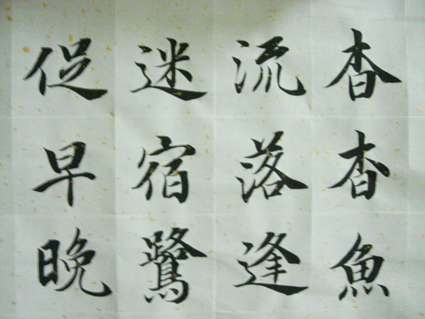 杳杳魚
流落逢
迷宿鷺
促早晚